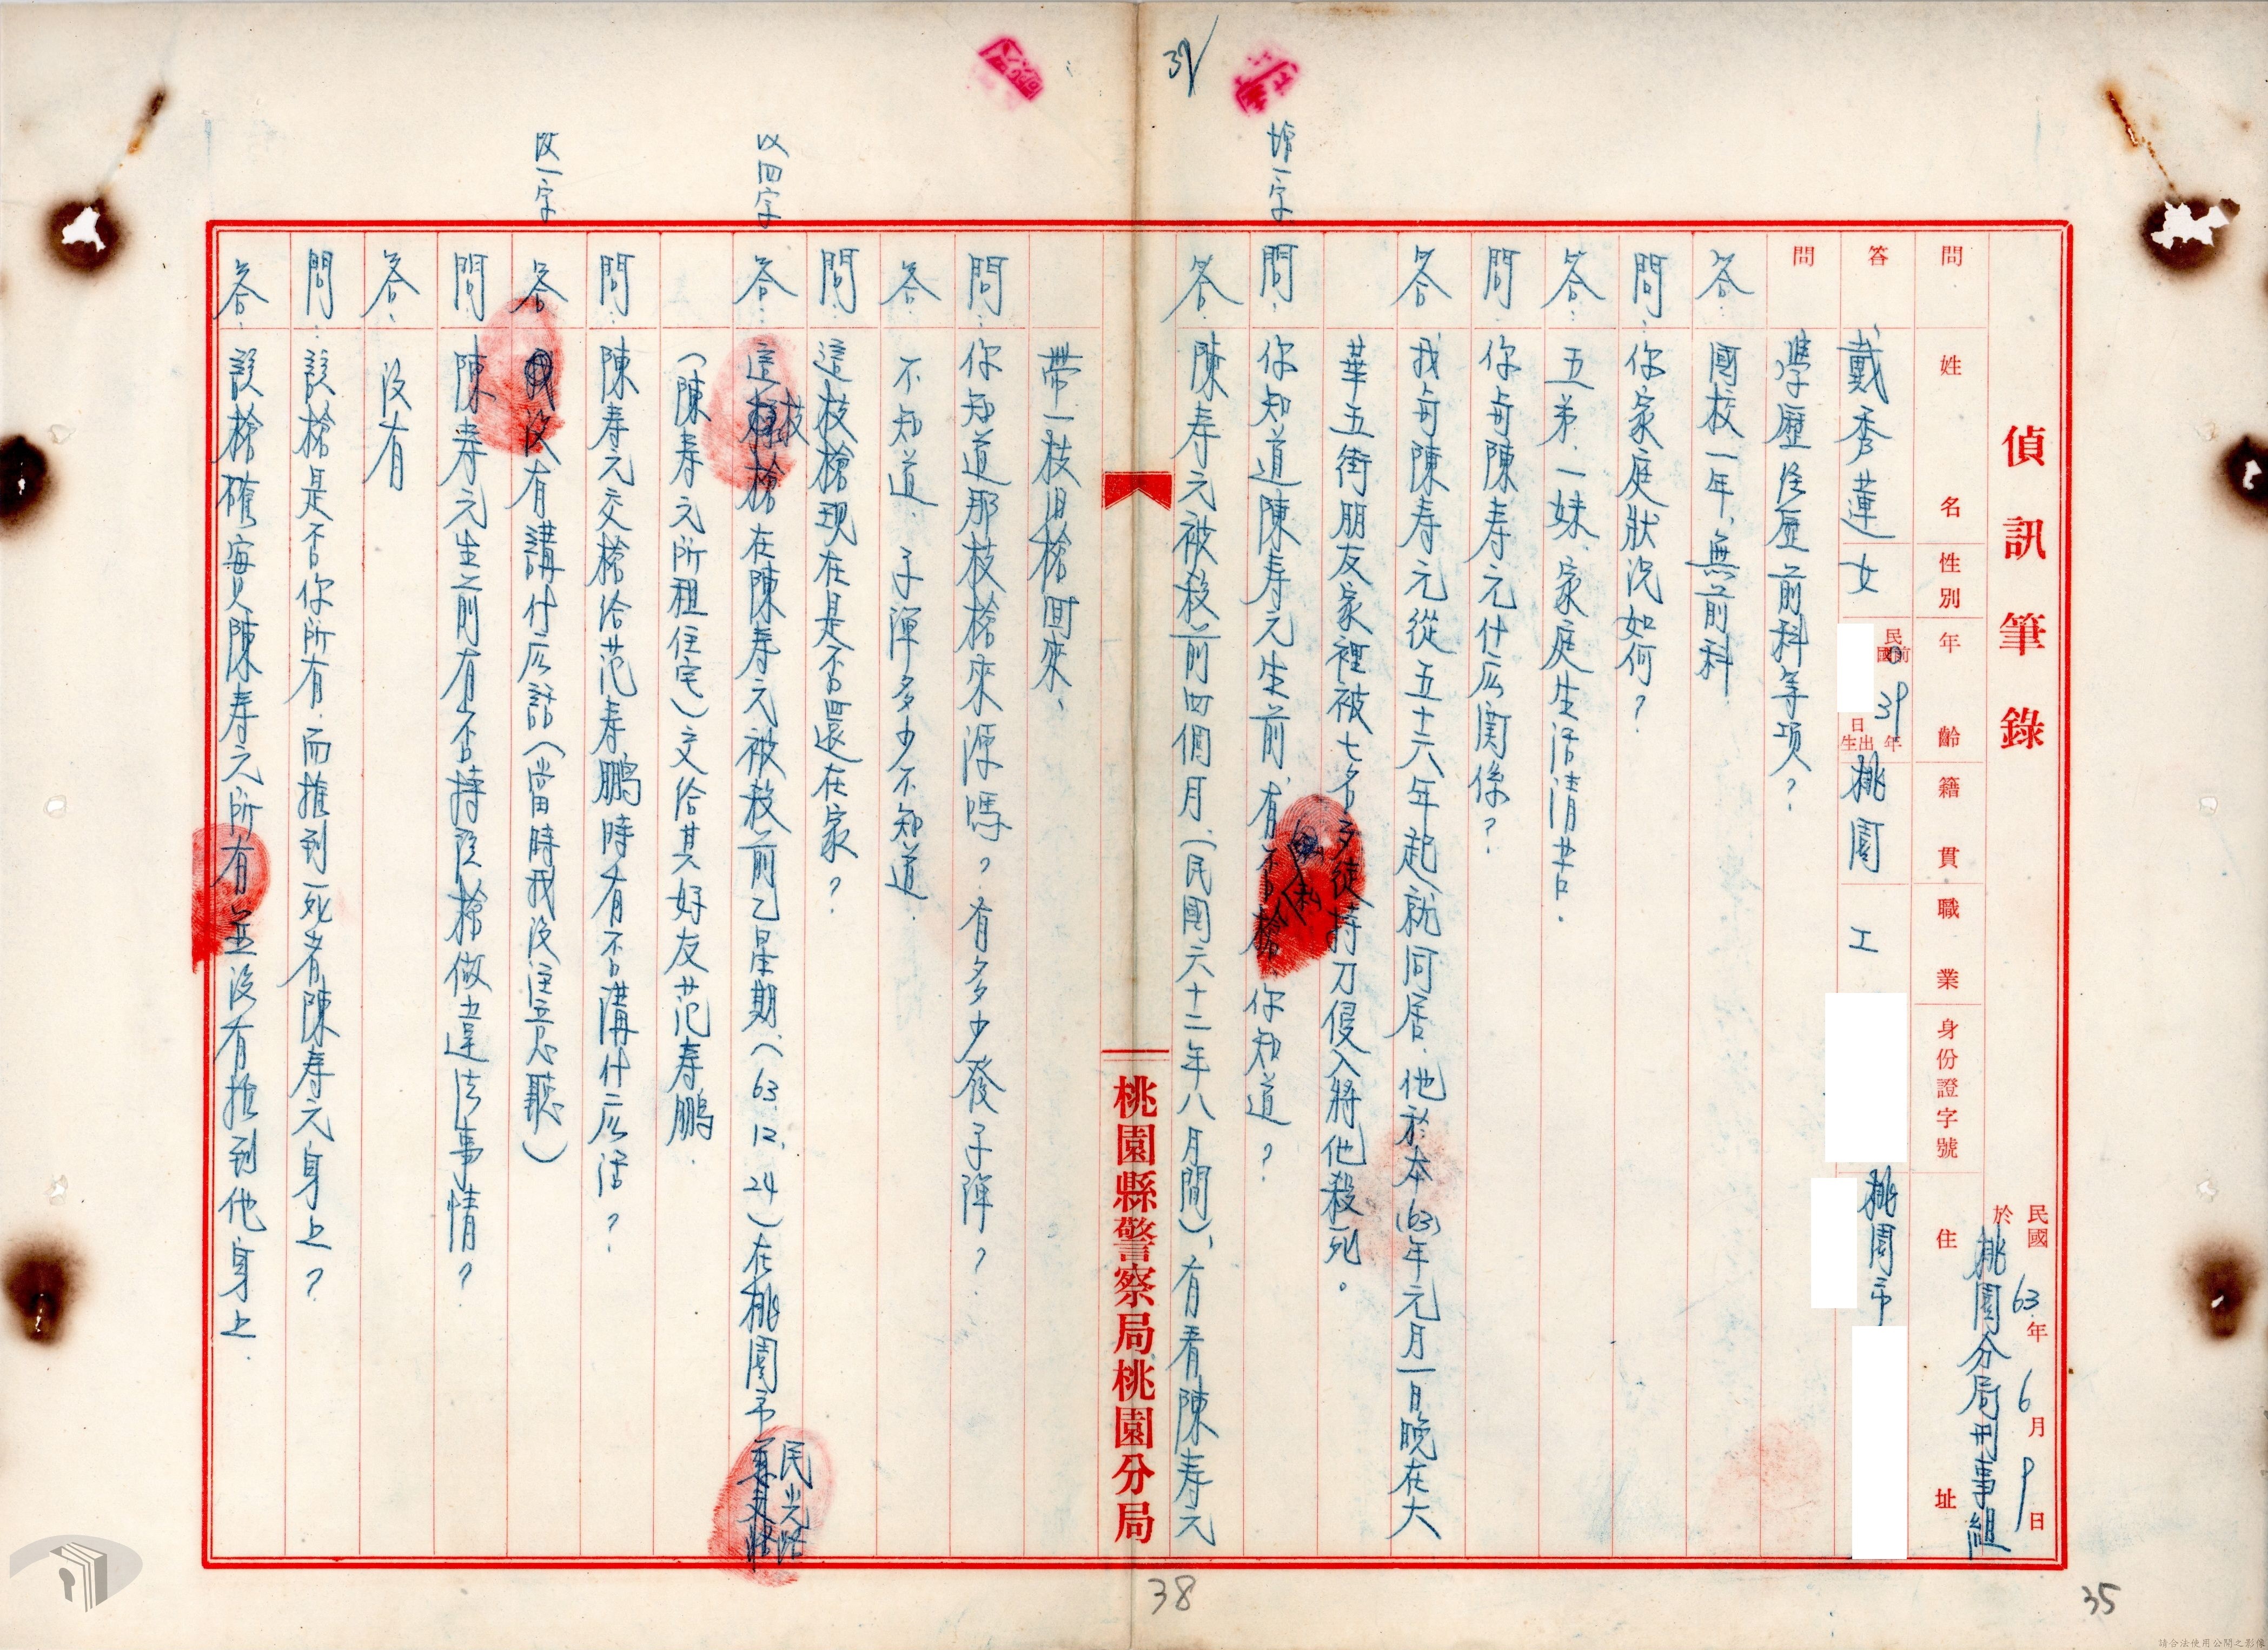 偵訊筆錄
民國63年6月9日
於桃園分局刑事組
問 姓名 性別 年齡 籍貫 職業 身份證字號 住址
答 戴秀蓮 女 民國前 39年 日出生 桃園 工 桃園市
問 學歷經歷前科等項？
答：國校一年、無前科
問：你家庭狀況如何？
答：五弟、一妹、家庭生活清苦．
問：你與陳寿元什広関係？
答 我與陳寿元從五十六年起就同居、他於本(63)年元月一日晚在大
華五街朋友家裡被七名歹徒持刀侵入將他殺死。
增一字
問：你知道陳寿元生前、有否私槍、你知道？
答：陳寿元被殺前四個月、(民國六十二年八月間)、有看陳寿元
桃園縣警察局桃園分局
帶一枝旧槍回來、
問：你知道那枝槍來源嗎？有多少發子彈？
答：不知道．子彈多少不知道．
問：這枝槍現在是否還在家？
改四字
答：這枝槍在陳寿元被殺前乙星期、(63、12、24)在桃園市民光路
(陳寿元所租住宅)交給其好友范寿鵬．
問：陳寿元交槍給范寿鵬時有否講什広話？
改一字
答 沒有講什広話(當時我沒注意聽)
問：陳寿元生之前有否持該槍做違法事情？
答、沒有
問：該槍是否你所有、而推到死者陳寿元身上？
答：該槍確實陳寿元所有並沒有推到他身上．
39
38
35
請合法使用公開之影像